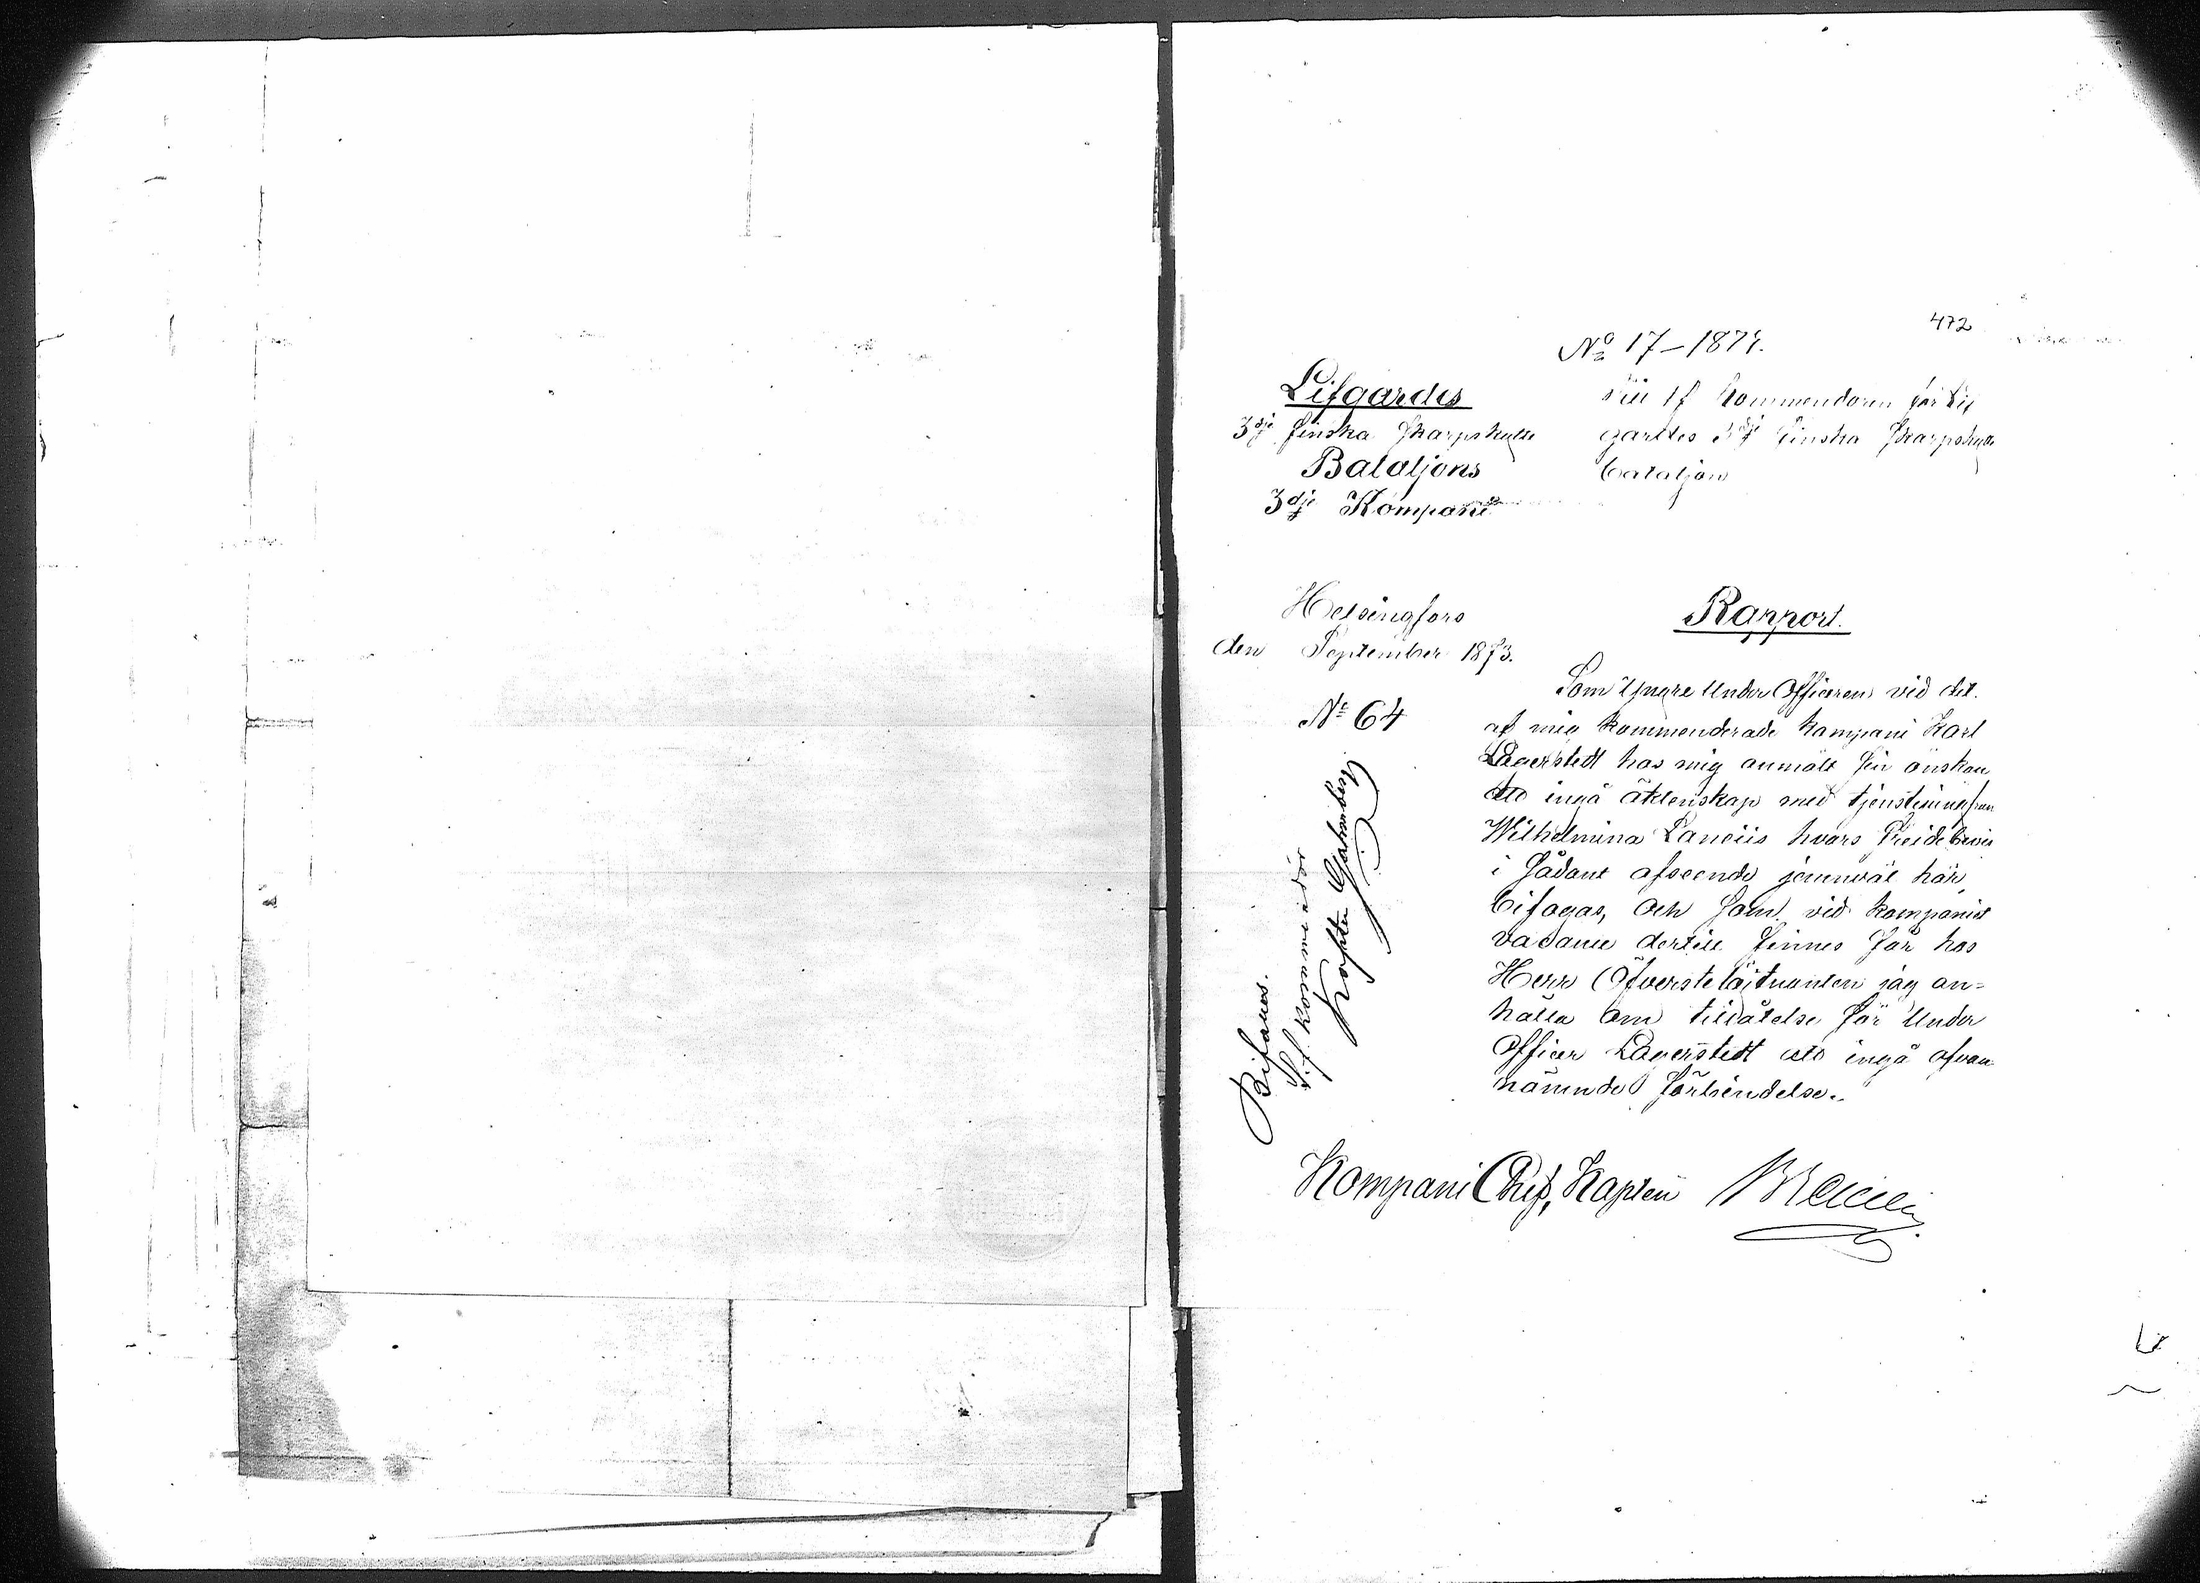 472
No 17–1874.
Lifgardes
3dje Finska Skarpskytte
Bataljons
3dje Kompani
Till tf Kommendören för Lif
gardes 3dje Finska Skarpskytte
bataljon
Helsingfors
den September 1873.
No 64
Rapport.
Som Yngre Under Officeren vid det
af mig kommenderade kompani Karl
Lagerstedt hos mig anmält sin önskan
att ingå äktenskap med tjenstepigan
Wilhelmina hvars Preidebevis
i sådant afseende jemnväl här
bifogas, och som vid kompaniet
vacance dertill finnes får hos
Herr Öfverstelöjtnanten jag an=
hålla om tillåtelse för Under
Officer Lagerstedt att ingå ofvan
nämnde förbindelse.
Kompani Chef, Kapten
Bifalles.
T. f. Kommendör
Kapten